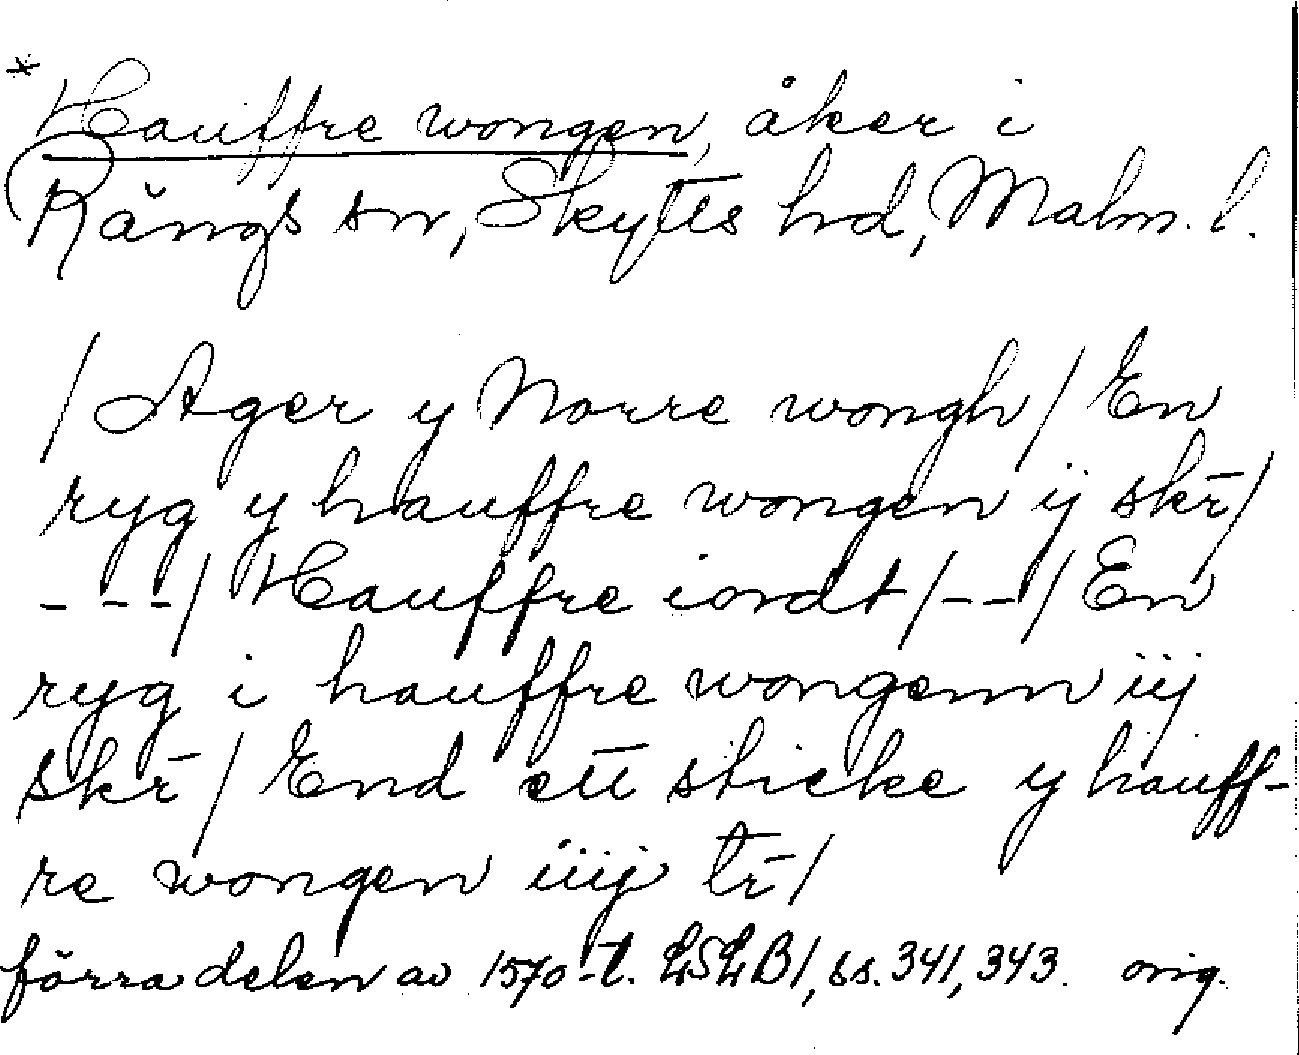 * Hauffre wongen, åker i
Rängs sn, Skytts hd, Malm. l.
/ Ager y Norre wongh / En
ryg y hauffre wongen ij skr̄ /
- - - / Hauffre iordt / - - / En
ryg i hauffre wongenn iij
skr̄ / End ett sticke y hauff-
re wongen iiij tr̄ /
förra delen av 1570-t. LSLB 1, ss. 341, 343. orig.